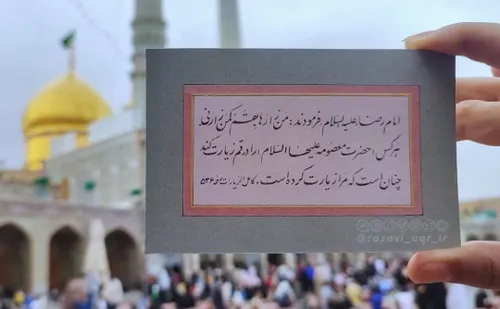 امام رضا علیه السلام فرمودند: من زارها بقم کمن زارنی
هرکس حضرت معصومه علیها السلام را در قم زیارت کند
چنان است که مرا زیارت کرده است. کامل الزیارات ص ۵۳۶
@razavi_aqr_ir